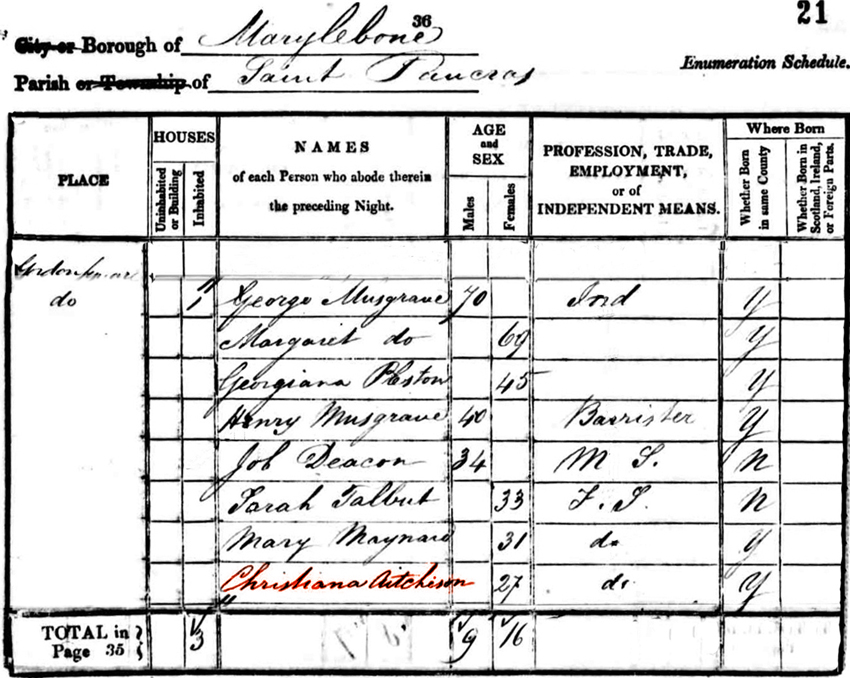 36
21
City or Borough of Marylebone
Parish or Township of Saint Pancras
Enumeration Schedule.
PLACE
HOUSES
Uninhabited or Building
Inhabited
NAMES
of each Person who abode therein
the preceding Night.
AGE
and
SEX
Males
Females
PROFESSION, TRADE,
EMPLOYMENT,
or of
INDEPENDENT MEANS.
Where Born
Whether Born in same County
Whether Born in Scotland, Ireland, or Foreign Parts.
Gordon Square
do 1 George Musgrave 70 Ind Y
Margaret do 69 Y
Georgiana 45 Y
Henry Musgrave 40 Barrister Y
Job Deacon 34 M S. N
Sarah Talbut 33 F. S. N
Mary Maynard 31 do Y
Christiana Aitchison 27 do Y
TOTAL in
Page 35 3 9 16